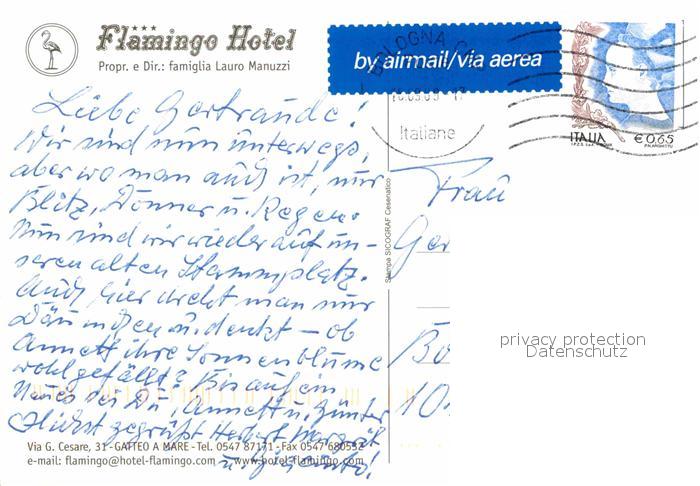 Flamingo Hotel
Propr. e Dir.: famiglia Lauro Manuzzi
by airmail/via aerea
BOLOGNA C.
Italiane
ITALIA € 0,65
Liebe Gertraude!
Wir sind nun unterwegs,
aber wo man auch ist, nur
Blitz, Donner u. Regen.
Nun sind wir wieder auf un-
seren alten Stammplatz.
Auch hier dreht man nur
Däumchen u. denkt – ob
Annett ihre Sonnenblume
wohlgefällt? Bis auf ein
Neues sei Du, Annett u. Günter
Herbert Margret
Frau
Ger
Bo
10
Stampa SICOGRAF Cesenatico
privacy protection
Datenschutz
Via G. Cesare, 31 - GATTEO A MARE - Tel. 0547 87171 - Fax 0547 680532
e-mail: flamingo@hotel-flamingo.com www.hotel-flamingo.com